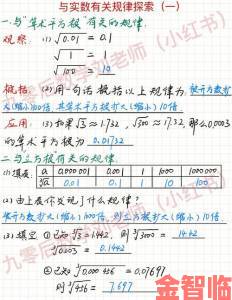 与实数有关规律探索(一)
一.与"算术平方根"有关的规律.
观察: (1) √0.01 = 0.1
√1 = 1
√100 = 10
概括: (2)用一句话概括以上规律为:被开方数扩
大(缩小)100倍,其算术平方根扩大(缩小)10倍.
应用: (3)如果√3≈1.732, √300≈17.32,那么0.0003
的算术平方根为 0.01732
二.与立方根有关的规律.
(1)填表: a 0.000001 0.001 1 1000 1000000
∛a 0.01 0.1 1 10 100
(2)由上表你发现了什么规律?
被开方数扩大(缩小)1000倍,则立方根扩大(缩小)10倍.
(3)填空 ①已知∛3=1.442, 则∛3000= 14.42
∛0.003= 0.1442
②已知∛0.000456=0.07697
则∛456= 7.697
金智临